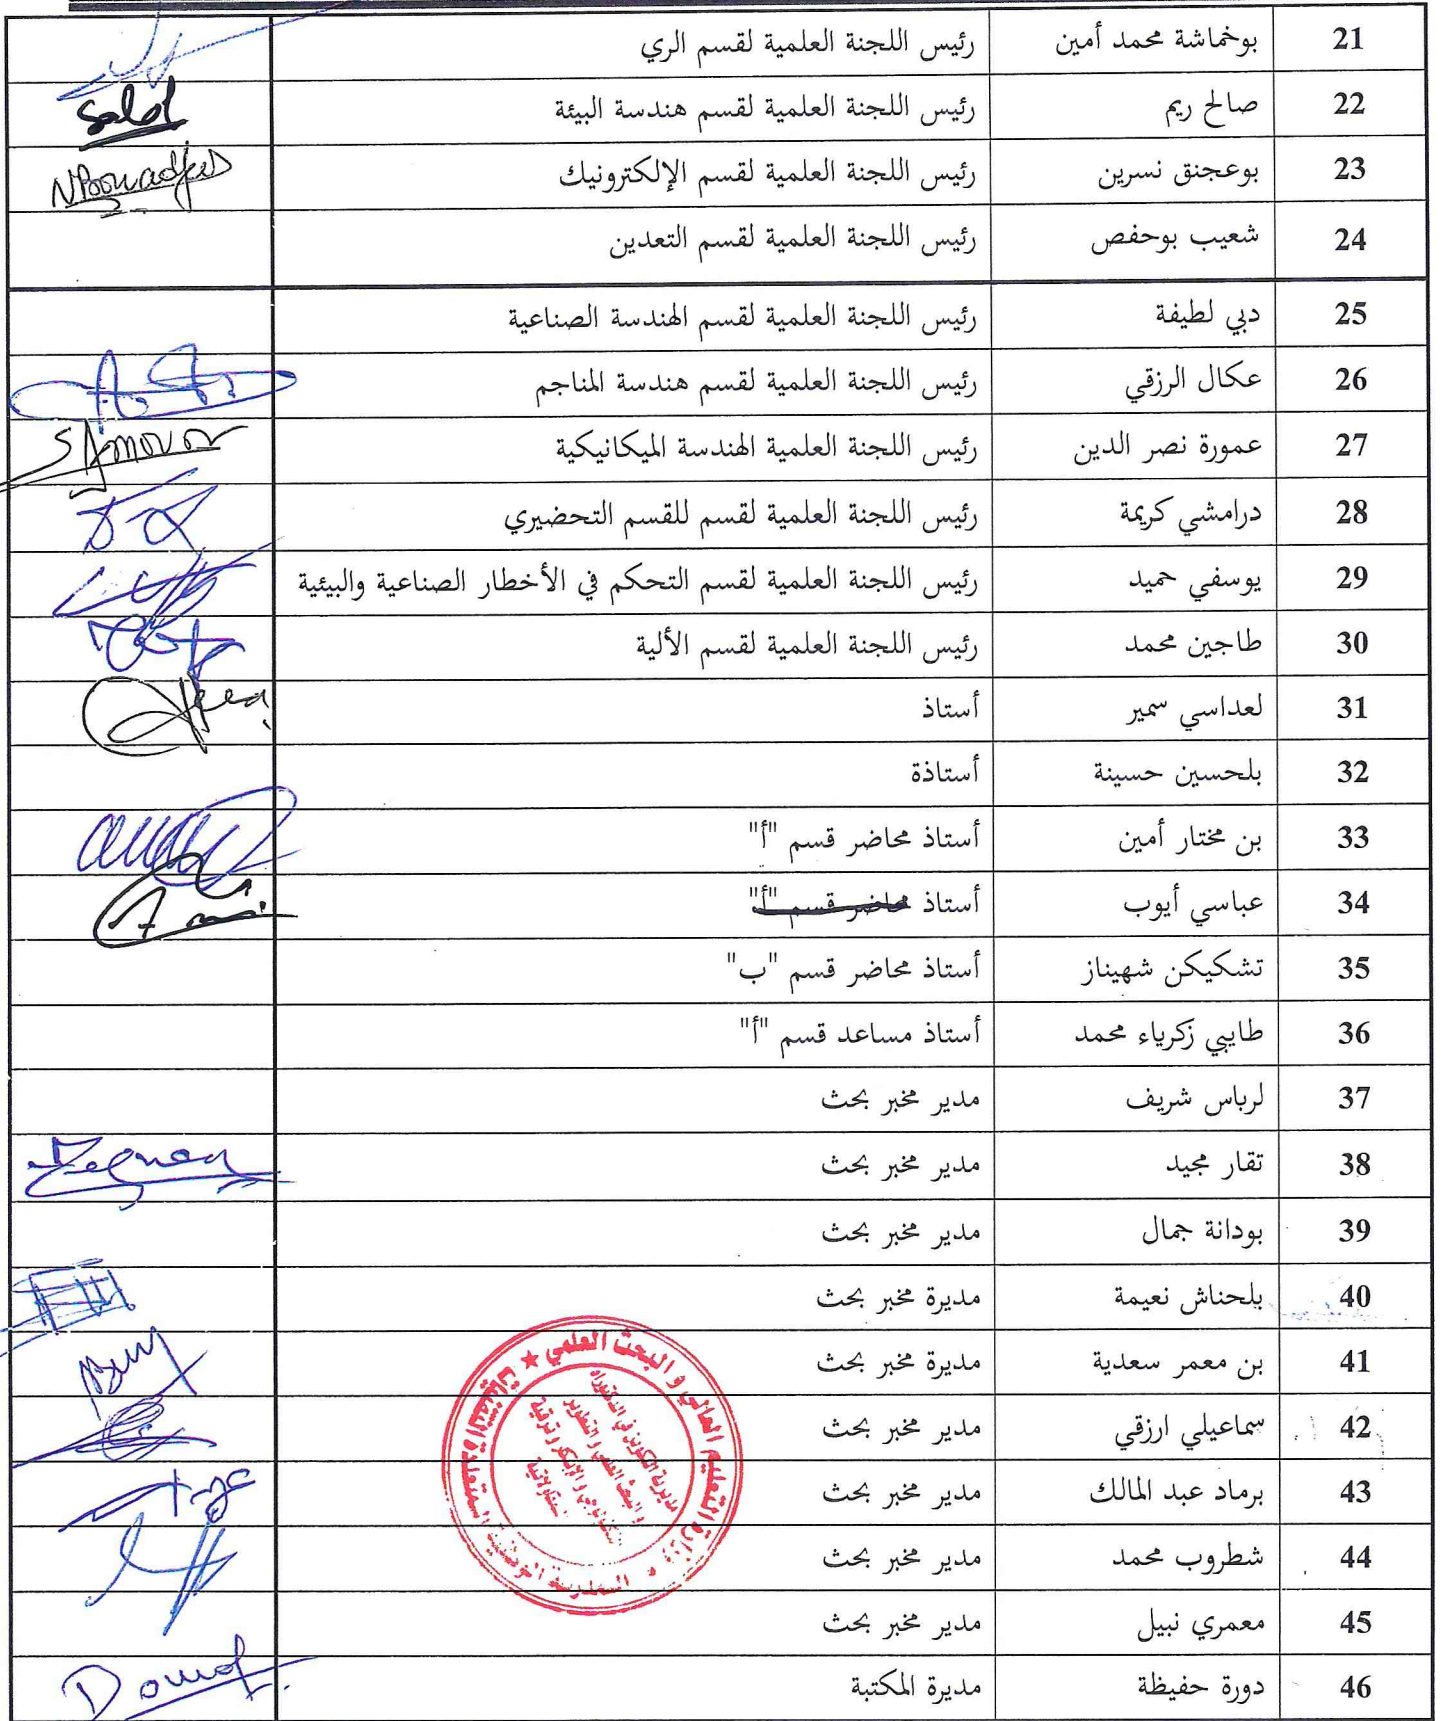 21 بوخماشة محمد أمين رئيس اللجنة العلمية لقسم الري
22 صالح ريم رئيس اللجنة العلمية لقسم هندسة البيئة
23 بوعجنق نسرين رئيس اللجنة العلمية لقسم الإلكترونيك
24 شعيب بوحفص رئيس اللجنة العلمية لقسم التعدين
25 دبي لطيفة رئيس اللجنة العلمية لقسم الهندسة الصناعية
26 عكال الرزقي رئيس اللجنة العلمية لقسم هندسة المناجم
27 عمورة نصر الدين رئيس اللجنة العلمية الهندسة الميكانيكية
28 درامشي كريمة رئيس اللجنة العلمية لقسم للقسم التحضيري
29 يوسفي حميد رئيس اللجنة العلمية لقسم التحكم في الأخطار الصناعية والبيئية
30 طاجين محمد رئيس اللجنة العلمية لقسم الألية
31 لعداسي سمير أستاذ
32 بلحسين حسينة أستاذة
33 بن مختار أمين أستاذ محاضر قسم "أ"
34 عباسي أيوب أستاذ محاضر قسم "أ"
35 تشكيكن شهيناز أستاذ محاضر قسم "ب"
36 طايبي زكرياء محمد أستاذ مساعد قسم "أ"
37 لرباس شريف مدير مخبر بحث
38 تقار مجيد مدير مخبر بحث
39 بودانة جمال مدير مخبر بحث
40 بلحناش نعيمة مديرة مخبر بحث
41 بن معمر سعدية مديرة مخبر بحث
42 سماعيلي ارزقي مدير مخبر بحث
43 برماد عبد المالك مدير مخبر بحث
44 شطروب محمد مدير مخبر بحث
45 معمري نبيل مدير مخبر بحث
46 دورة حفيظة مديرة المكتبة
وزارة التعليم العالي و البحث العلمي
المدرسة الوطنية المتعددة التقنيات
مديرية التكوين في الدكتوراه
و البحث العلمي و التطوير